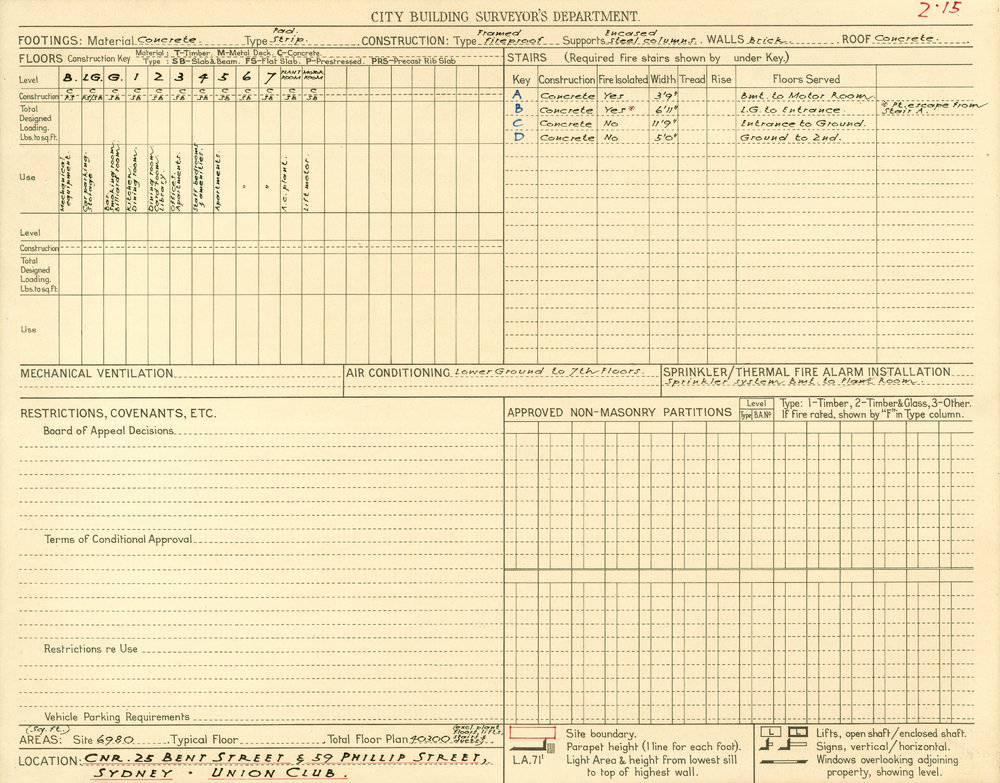 CITY BUILDING SURVEYOR'S DEPARTMENT.
2·15
FOOTINGS: Material Concrete. Type Pad. Strip. CONSTRUCTION: Type Framed fireproof Supports Encased steel columns. WALLS Brick. ROOF Concrete.
FLOORS Construction Key Material: T-Timber, M-Metal Deck, C-Concrete.
Type: SB-Slab & Beam. FS-Flat Slab. P-Prestressed. PRS-Precast Rib Slab
Level B. LG. G. 1 2 3 4 5 6 7 PLANT ROOM MOTOR ROOM
Construction C FS C FS/SB C SB C SB C SB C SB C SB C SB C SB C SB C SB C SB
Total Designed Loading. Lbs. to sq. ft.
Use
Mechanical equipment.
Car parking. Storage.
Bar. Smoking room. Billiard room.
Kitchen. Dining room.
Dining room. Card room. Library.
Offices. Apartments.
Staff bedrooms & amenities.
Apartments.
"
"
A.c. plant.
Lift motor.
Level
Construction
Total Designed Loading. Lbs. to sq. ft.
Use
STAIRS (Required fire stairs shown by under Key.)
Key Construction Fire Isolated Width Tread Rise Floors Served
A Concrete Yes 3'9" Bmt. to Motor Room.
B Concrete Yes* 6'11" L.G. to Entrance. * Pt. escape from Stair A.
C Concrete No 11'9" Entrance to Ground.
D Concrete No 5'0" Ground to 2nd.
MECHANICAL VENTILATION
AIR CONDITIONING Lower Ground to 7th Floors.
SPRINKLER/THERMAL FIRE ALARM INSTALLATION
Sprinkler system Bmt. to Plant Room
RESTRICTIONS, COVENANTS, ETC.
Board of Appeal Decisions
Terms of Conditional Approval
Restrictions re Use
Vehicle Parking Requirements
APPROVED NON-MASONRY PARTITIONS
Level
Type B.A.Nº
Type: 1-Timber, 2-Timber & Glass, 3-Other.
If fire rated, shown by "F" in Type column.
(Sq. ft.)
AREAS: Site 6980 Typical Floor Total Floor Plan 40300 (excl. plant floors, lifts, stairs & ducts)
LOCATION: CNR. 25 BENT STREET & 59 PHILLIP STREET,
SYDNEY · UNION CLUB.
Site boundary.
Parapet height (1 line for each foot).
L.A. 71' Light Area & height from lowest sill
to top of highest wall.
L
Lifts, open shaft / enclosed shaft.
Signs, vertical / horizontal.
Windows overlooking adjoining
property, showing level.